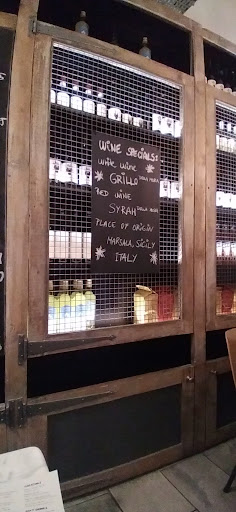 WINE SPECIALS:
WHITE WINE
GRILLO
RED WINE
SYRAH
PLACE OF ORIGIN
MARSALA, SICILY
ITALY